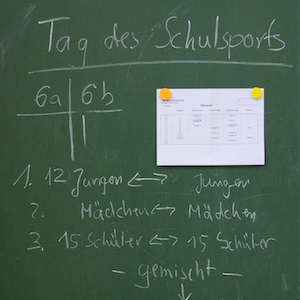 Tag des Schulsports
6a 6b
1. 12 Jungen ↔ Jungen
2. Mädchen ↔ Mädchen
3. 15 Schüler ↔ 15 Schüler
- gemischt -